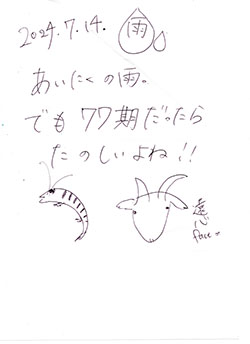 2024.7.14. 雨
あいにくの雨。
でも77期だったら
たのしいよね!!